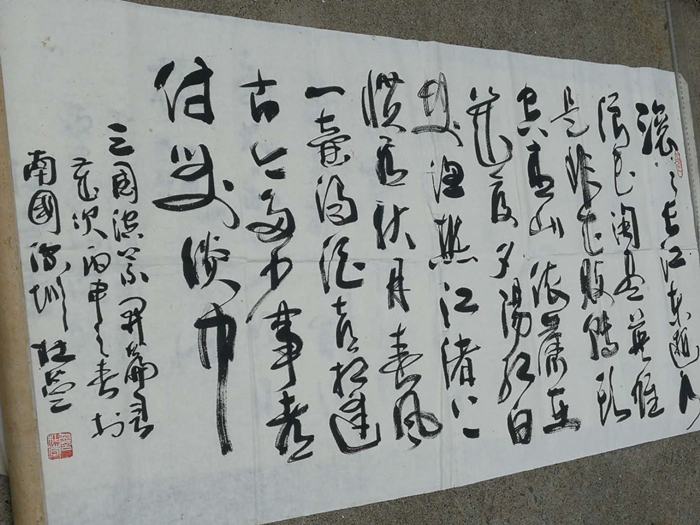 滚々长江东逝水
浪花淘尽英雄
是非成败转头
空青山依旧在
几度夕阳红白
发渔樵江渚上
惯看秋月春风
一壶浊酒喜相逢
古今多少事都
付笑谈中
三国演义开篇词
岁次丙申之春於
南國深圳